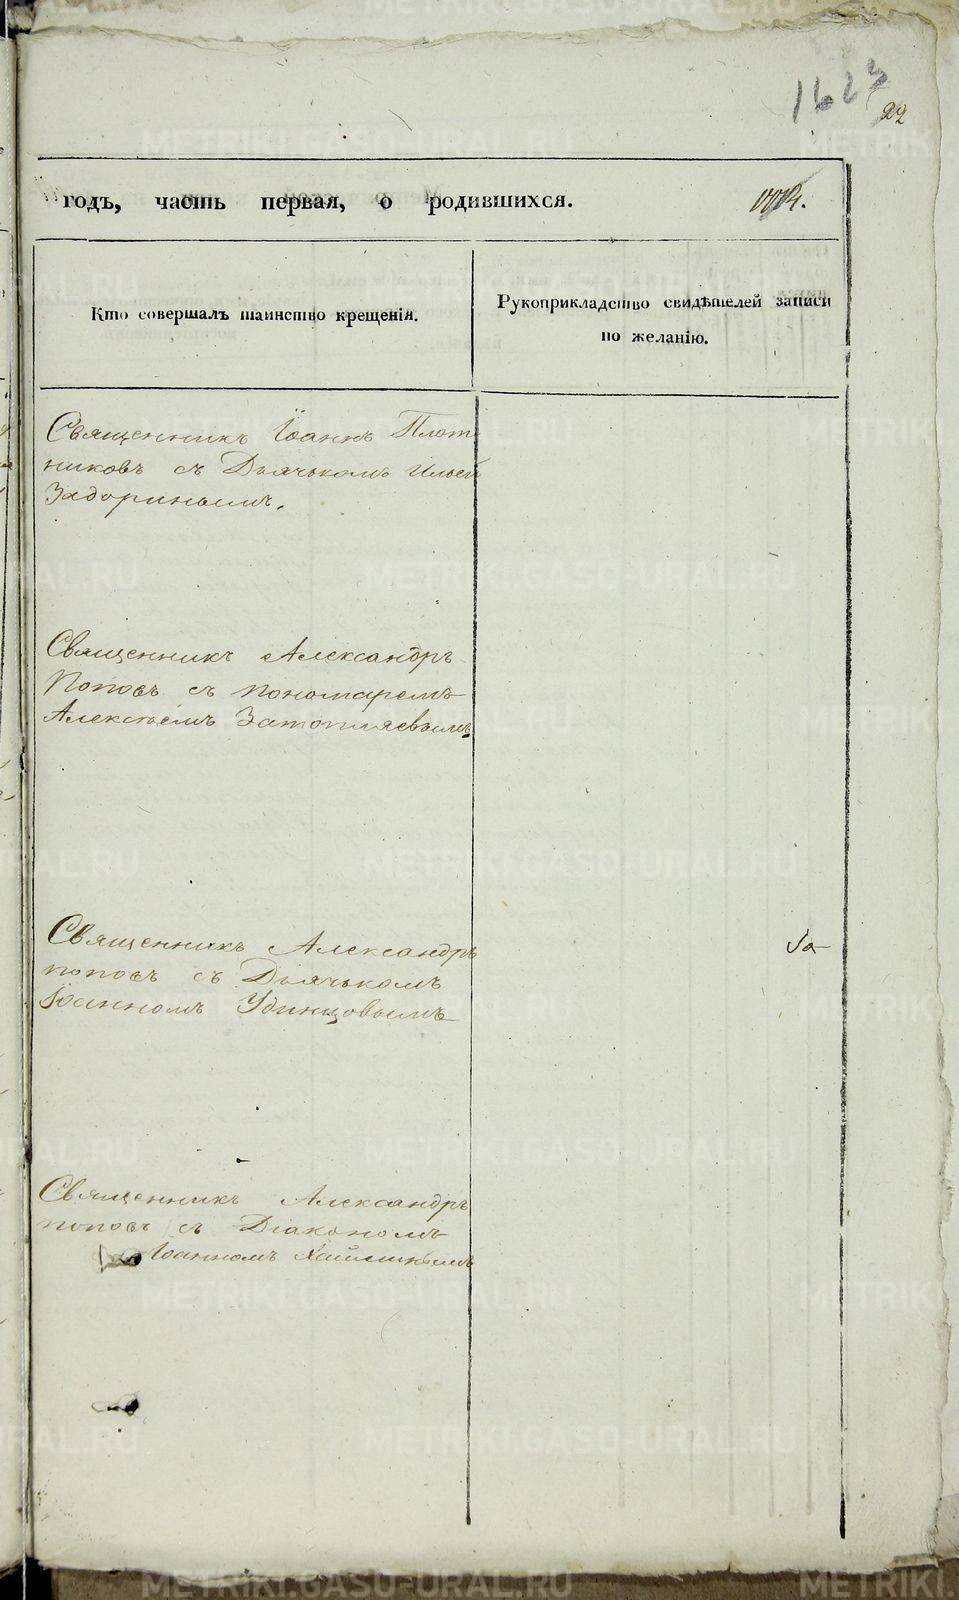 1623
22
годъ, часть первая, о родившихся.
Кто совершалъ таинство крещенія.
Рукоприкладство свидѣтелей записи
по желанію.
Священникъ Іоаннъ Плот-
никовъ съ Дьячькомъ Ильей
Задоринымъ.
Священникъ Александръ
Поповъ съ пономаремъ
Алексѣемъ Затопляевымъ
Священникъ Александръ
поповъ съ Дьячькомъ
Іоанномъ Удинцовымъ
Священникъ Александръ
поповъ съ Діакономъ
Іоанномъ
METRIKI.GASO-URAL.RU